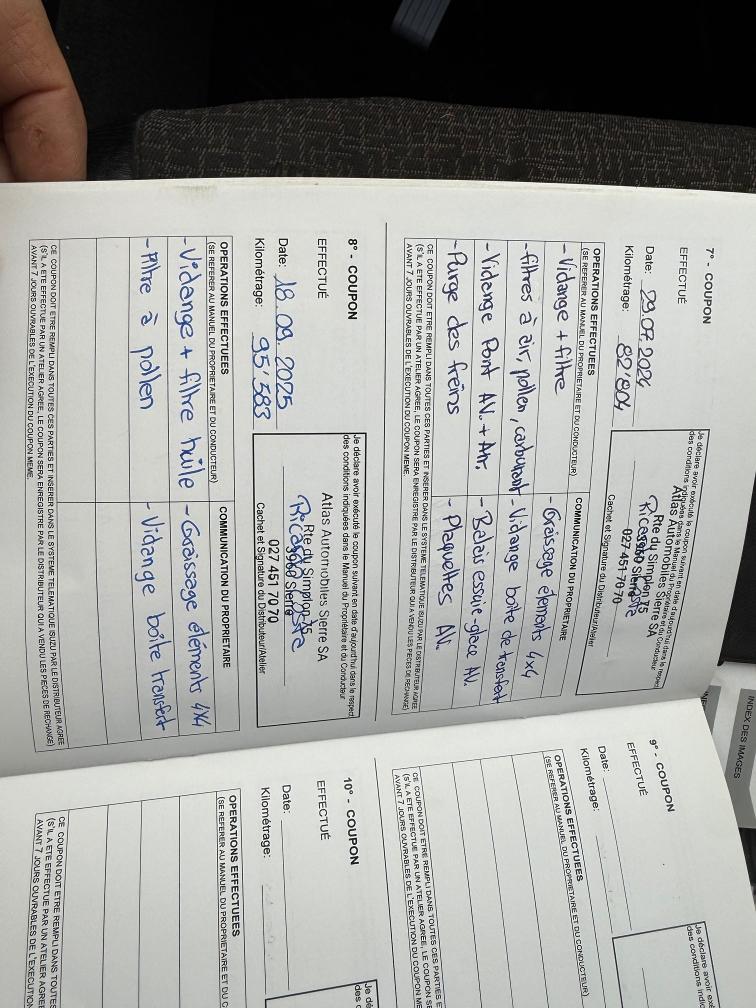 7° - COUPON
EFFECTUÉ
Date: 29.07.2024
Kilométrage: 82'804
Je déclare avoir exécuté le coupon suivant en date d'aujourd'hui dans le respect
des conditions indiquées dans le Manuel du Propriétaire et du Conducteur
Atlas Automobiles Sierre SA
Rte du Simplon 75
3960 Sierre
027 451 70 70
Cachet et Signature du Distributeur/Atelier
OPERATIONS EFFECTUEES
(SE REFERER AU MANUEL DU PROPRIETAIRE ET DU CONDUCTEUR)
COMMUNICATION DU PROPRIETAIRE
- Vidange + filtre
- Graissage éléments 4x4
- filtres à air, pollen, carburant
- Vidange boîte de transfert
- Vidange Pont AV. + Arr.
- Balais essuie-glace AV.
- Purge des freins
- Plaquettes AV.
CE COUPON DOIT ETRE REMPLI DANS TOUTES CES PARTIES ET INSERER DANS LE SYSTEME TELEMATIQUE ISUZU PAR LE DISTRIBUTEUR AGREE
(S'IL A ETE EFFECTUE PAR UN ATELIER AGREE, LE COUPON SERA ENREGISTRE PAR LE DISTRIBUTEUR QUI A VENDU LES PIECES DE RECHANGE)
AVANT 7 JOURS OUVRABLES DE L'EXECUTION DU COUPON MEME.
8° - COUPON
EFFECTUÉ
Date: 18.09.2025
Kilométrage: 95'583
Je déclare avoir exécuté le coupon suivant en date d'aujourd'hui dans le respect
des conditions indiquées dans le Manuel du Propriétaire et du Conducteur
Atlas Automobiles Sierre SA
Rte du Simplon 75
3960 Sierre
027 451 70 70
Cachet et Signature du Distributeur/Atelier
OPERATIONS EFFECTUEES
(SE REFERER AU MANUEL DU PROPRIETAIRE ET DU CONDUCTEUR)
COMMUNICATION DU PROPRIETAIRE
- Vidange + filtre huile
- Graissage éléments 4x4
- Filtre à pollen
- Vidange boîte transfert
CE COUPON DOIT ETRE REMPLI DANS TOUTES CES PARTIES ET INSERER DANS LE SYSTEME TELEMATIQUE ISUZU PAR LE DISTRIBUTEUR AGREE
(S'IL A ETE EFFECTUE PAR UN ATELIER AGREE, LE COUPON SERA ENREGISTRE PAR LE DISTRIBUTEUR QUI A VENDU LES PIECES DE RECHANGE)
AVANT 7 JOURS OUVRABLES DE L'EXECUTION DU COUPON MEME.
INDEX DES IMAGES
9° - COUPON
EFFECTUÉ
Date:
Kilométrage:
Je déclare avoir
des conditions
OPERATIONS EFFECTUEES
(SE REFERER AU MANUEL DU PROPRIETAIRE ET DU CONDUCTEUR)
CE COUPON DOIT ETRE REMPLI DANS TOUTES CES PARTIES E
(S'IL A ETE EFFECTUE PAR UN ATELIER AGREE, LE COUPON SE
AVANT 7 JOURS OUVRABLES DE L'EXECUTION DU COUPON M
10° - COUPON
EFFECTUÉ
Date:
Kilométrage:
Je dé
des c
OPERATIONS EFFECTUEES
(SE REFERER AU MANUEL DU PROPRIETAIRE ET DU C
CE COUPON DOIT ETRE REMPLI DANS TOUTES
(S'IL A ETE EFFECTUE PAR UN ATELIER AGREE
AVANT 7 JOURS OUVRABLES DE L'EXECUTION